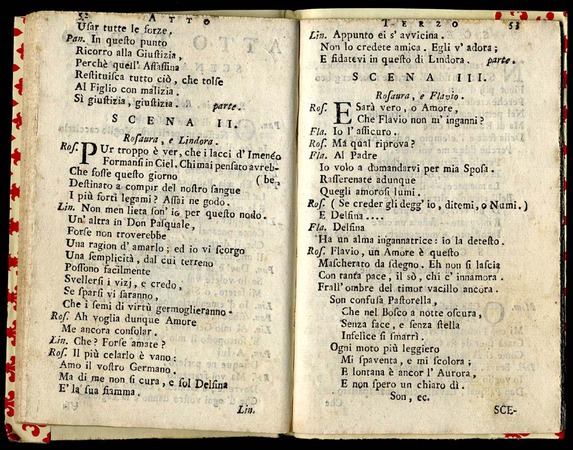 52 ATTO
Usar tutte le forze.
Pan. In questo punto
Ricorro alla Giustizia,
Perchè quell' Assassina
Restituisca tutto ciò, che tolse
Al Figlio con malizia.
Sì giustizia, giustizia. parte.
SCENA II.
Rosaura, e Lindora.
Ros. PUr troppo è ver, che i lacci d' Imenéo
Formansi in Ciel. Chi mai pensato avreb-
Che fosse questo giorno (be,
Destinato a compir del nostro sangue
I più forti legami? Assai ne godo.
Lin. Non men lieta son' io per questo nodo.
Un' altra in Don Pasquale,
Forse non troverebbe
Una ragion d' amarlo; ed io vi scorgo
Una semplicità, dal cui terreno
Possono facilmente
Svellersi i vizj, e credo,
Se sparsi vi saranno,
Che i semi di virtù germoglieranno.
Ros. Ah voglia dunque Amore
Me ancora consolar.
Lin. Che? Forse amate?
Ros. Il più celarlo è vano:
Amo il vostro Germano.
Ma di me non si cura, e sol Delfina
E' la sua fiamma.
Lin.
TERZO 53
Lin. Appunto ei s' avvicina.
Non lo credete amica. Egli v' adora;
E fidatevi in questo di Lindora. parte.
SCENA III.
Rosaura, e Flavio.
Ros. ESarà vero, o Amore,
Che Flavio non m' inganni?
Fla. Io l' assicuro.
Ros. Ma qual riprova?
Fla. Al Padre
Io volo a dimandarvi per mia Sposa.
Rasserenate adunque
Quegli amorosi lumi.
Ros. (Se creder gli degg' io, ditemi, o Numi.)
E Delfina....
Fla. Delfina
Ha un alma ingannatrice: io la detesto.
Ros. Flavio, un Amore è questo
Mascherato da sdegno. Eh non si lascia
Con tanta pace, il sò, chi c' innamora.
Frall' ombre del timor vacillo ancora.
Son confusa Pastorella,
Che nel Bosco a notte oscura,
Senza face, e senza stella
Infelice si smarrì.
Ogni moto più leggiero
Mi spaventa, e mi scolora;
E lontana è ancor l' Aurora,
E non spero un chiaro dì.
Son, ec.
SCE-